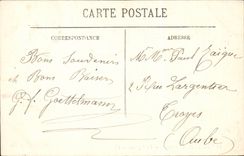 CARTE POSTALE
CORRESPONDANCE
ADRESSE
Bons Souvenirs
et Bons Baisers
Goettelmann
M. Mme Paul
2 Rue Largentier
Troyes
Aube